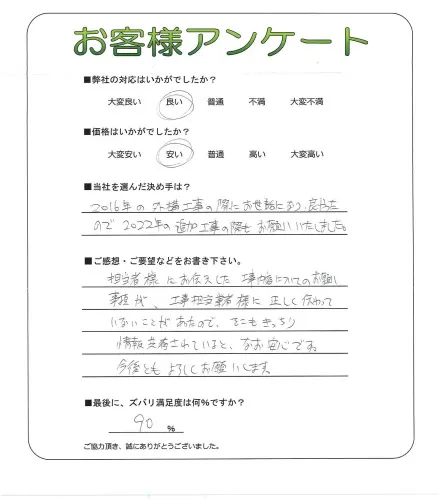 お客様アンケート
■弊社の対応はいかがでしたか？
大変良い 良い 普通 不満 大変不満
■価格はいかがでしたか？
大変安い 安い 普通 高い 大変高い
■当社を選んだ決め手は？
2016年の 外構工事の際にお世話になり、良かった
ので 2022年の追加工事の際も お願いいたしました。
■ご感想・ご要望などをお書き下さい。
担当者様にお伝えした 工事内容についてのお願い
事項が、工事担当業者様に 正しく伝わって
いないことがあったので、そこもきっちり
情報共有されていると、なお安心です。
今後とも よろしくお願いします。
■最後に、ズバリ満足度は何％ですか？
90 ％
ご協力頂き、誠にありがとうございました。